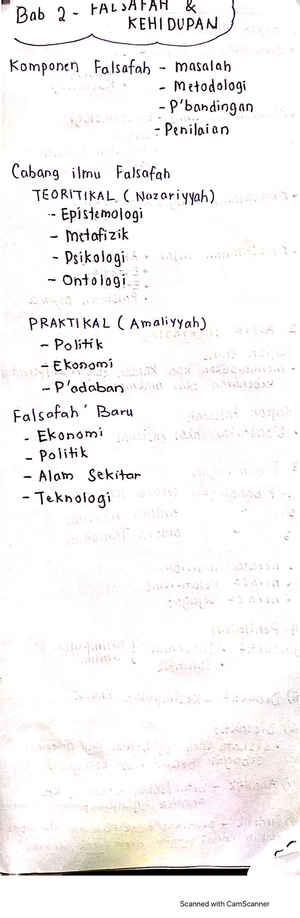 Bab 2 - FALSAFAH &
KEHIDUPAN
Komponen Falsafah - masalah
- Metodologi
- P'bandingan
- Penilaian
Cabang ilmu Falsafah
TEORITIKAL (Nazariyyah)
- Epistemologi
- Metafizik
- Psikologi
- Ontologi
PRAKTIKAL (Amaliyyah)
- Politik
- Ekonomi
- P'adaban
Falsafah Baru
- Ekonomi
- Politik
- Alam Sekitar
- Teknologi
Scanned with CamScanner